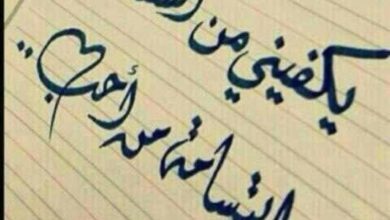 يكفيني من
ابتسامة من أحب ..